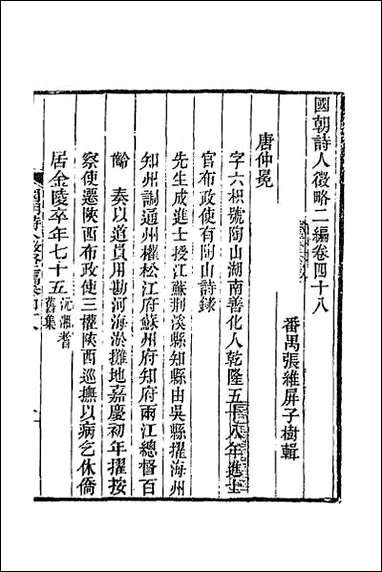 國朝詩人徵略二編卷四十八
番禺張維屏子樹輯
唐仲冕
字六枳號陶山湖南善化人乾隆五十八年進士
官布政使有陶山詩錄
先生成進士授江蘇荆溪縣知縣由吳縣擢海州
知州調通州權松江府蘇州府知府兩江總督百
齡 奏以道員用勘河海淤灘地嘉慶初年擢按
察使遷陝西布政使三權陝西巡撫以病乞休僑
居金陵卒年七十五沅湘耆舊集